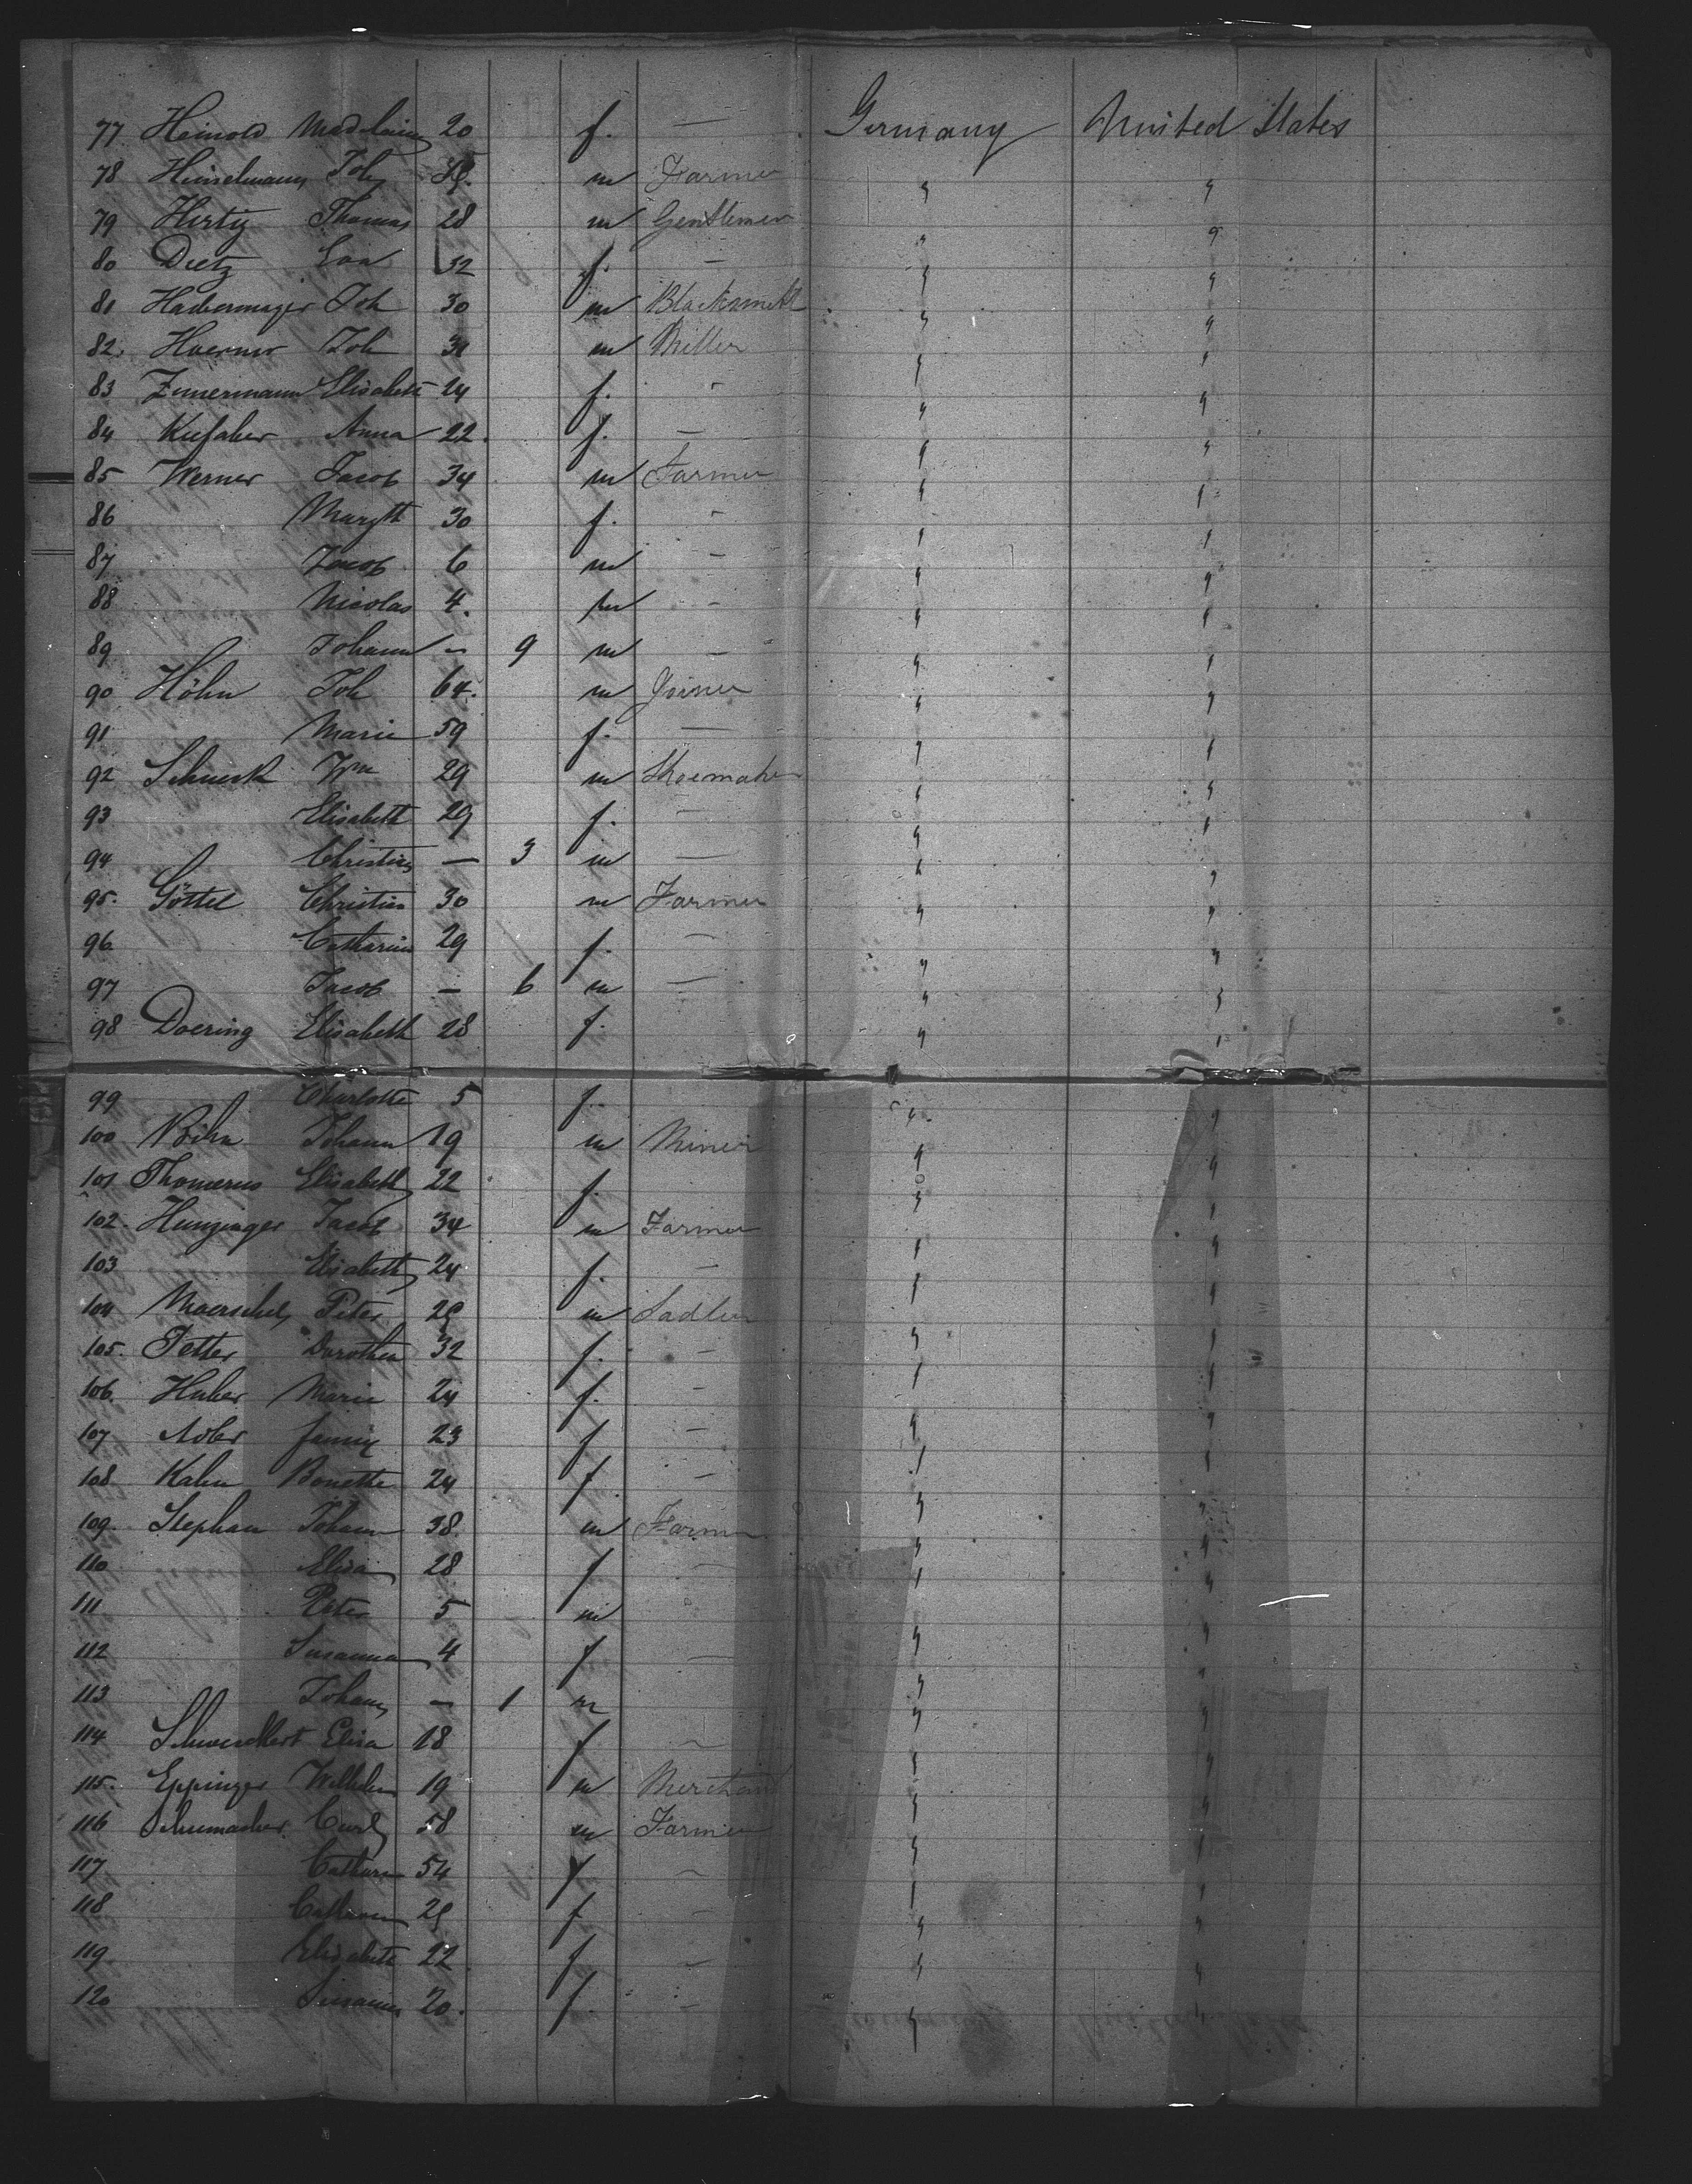 77 Heinold Madelaine 20 f. — Germany United States
78 Heinselmann Joh m Farmer " "
79 Hirtz Thomas 28 m Gentlemen " "
80 Dietz Eva 32 f. — " "
81 Habermayer Joh 30 m Blacksmith " "
82. Hoerner Joh 31 m Miller " "
83 Zimermann Elisabeth 24 f. - " "
84 Kiefaber Anna 22. f. — " "
85 Werner Jacob 34 m Farmer " "
86 Margth 30 f. - " "
87 Jacob 6 m - " "
88 Nicolas 4. m - " "
89 Johann — 9 m — " "
90 Höhn Joh 64. m Joiner " "
91 Marie 59 f. — " "
92 Schuerk Wm 29 m Shoemaker " "
93 Elisabeth 29 f. — " "
94 Christian — 3 m — " "
95. Göttel Christian 30 m Farmer " "
96 Catharina 29 f. — " "
97 Jacob — 6 m — " "
98 Doering Elisabeth 28 f. " "
99 Charlotte 5 f. " "
100 Johann 19 m Miner " "
101 Elisabeth 22 f. " "
102. Hunzinger Jacob 34 m Farmer " "
103 Elisabeth 24 f. — " "
104 Moerschel Peter 29 m Sadler " "
105. Fetter Dorothea 32 f. - " "
106. Huber Marie 24 f. - " "
107 Adler Jennie 23 f - " "
108 Kahn Bonette 24 f. - " "
109. Stephan Johann 38. m Farmer " "
110 Elisa 28 f - " "
111 Peter 5 m - " "
112 Susanna 4 f — " "
113 Johann — 1 m " "
114 Elisa 18 f ~ " "
115. Eppinger Wilhelm 19 m Merchant " "
116 Schumacher Carl 58 m Farmer " "
117 Cathar 54 f ~ " "
118 29 f - " "
119. Elisabeth 22 f ~ " "
120 Susanna 20. f. - " "